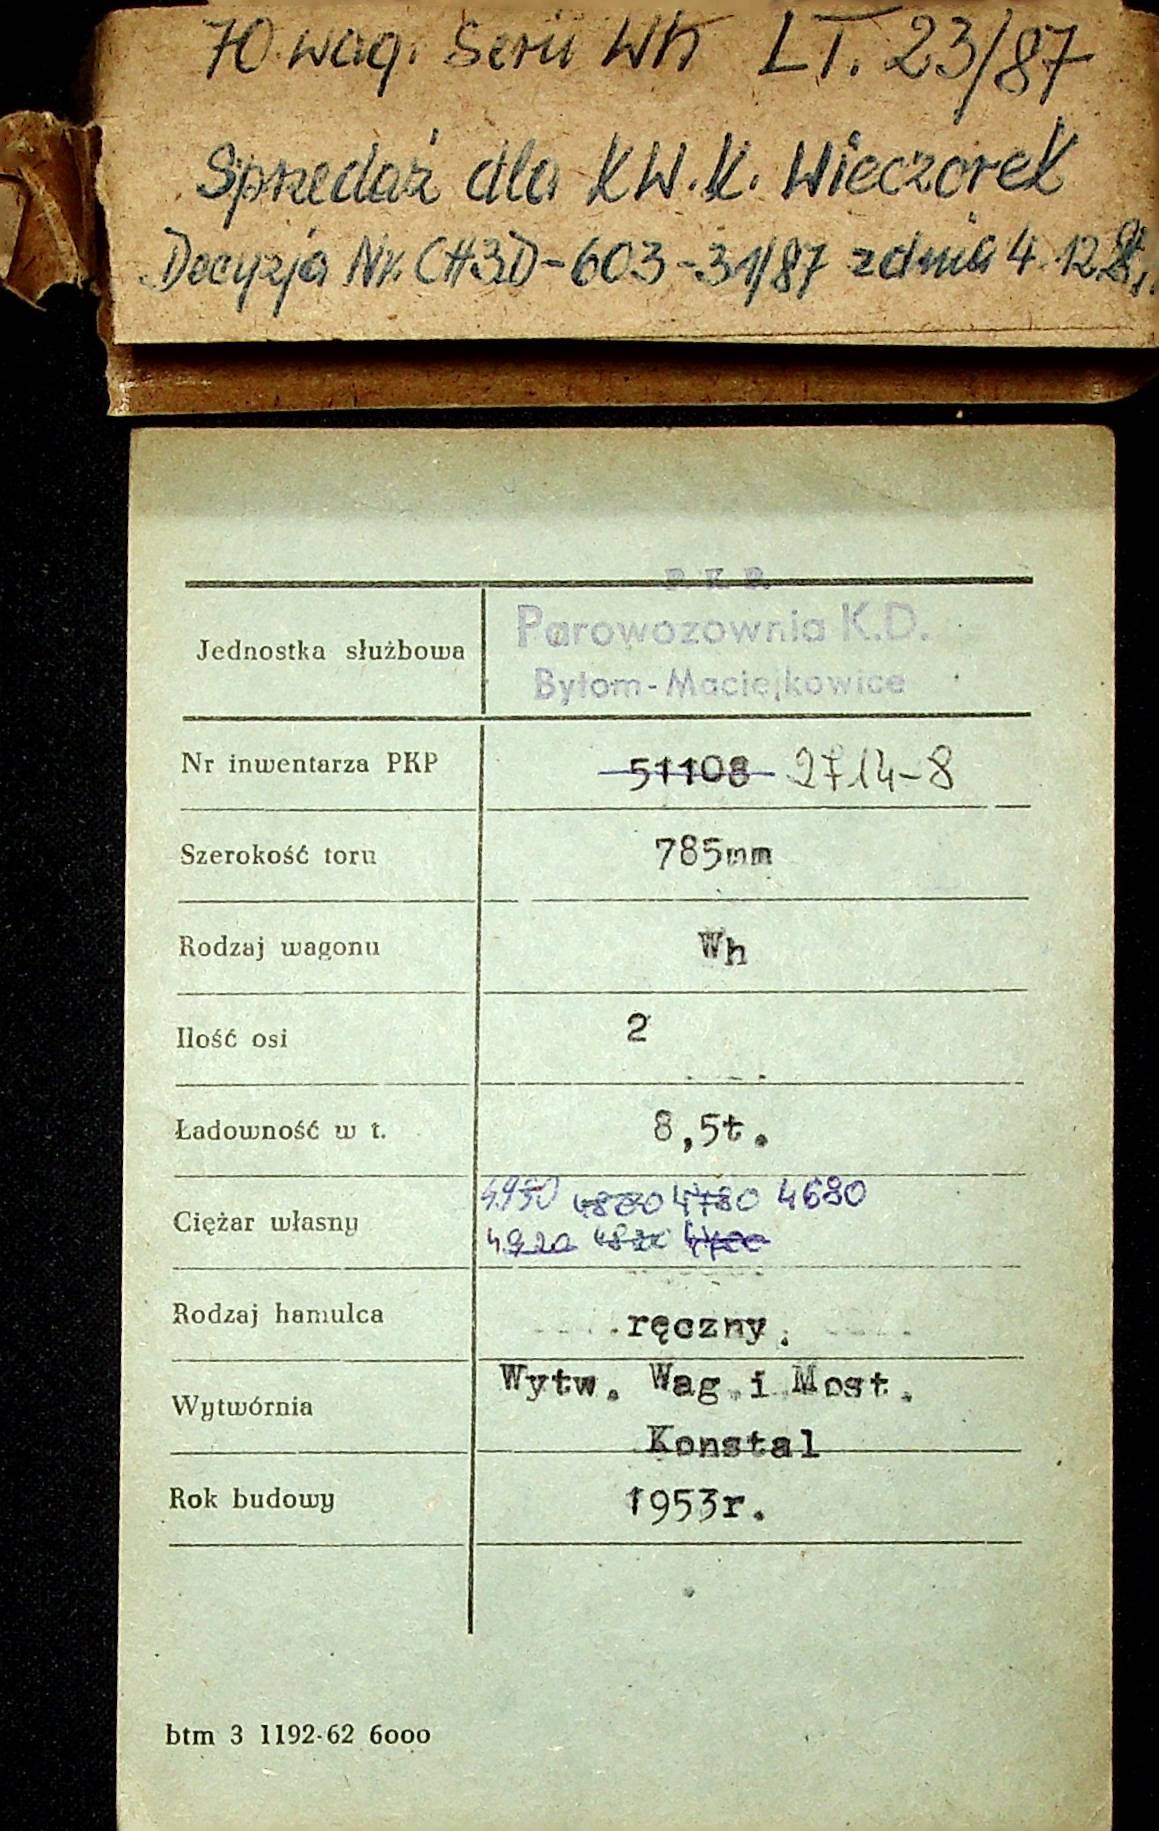 70 wag. Serii Wh LT. 23/87
Sprzedaż dla KW.K. Wieczorek
Decyzja Nr. CH3D-603-31/87 z dnia 4.12.
P. K. P.
Parowozownia K.D.
Bytom-Maciejkowice
Jednostka służbowa
Nr inwentarza PKP 51108 2714-8
Szerokość toru 785mm
Rodzaj wagonu Wh
Ilość osi 2
Ładowność w t. 8,5t.
4950 4860 4780 4680
Ciężar własny
4920
Rodzaj hamulca ręczny.
Wytw. Wag.i Most.
Wytwórnia
Konstal
Rok budowy 1953r.
btm 3 1192-62 6000